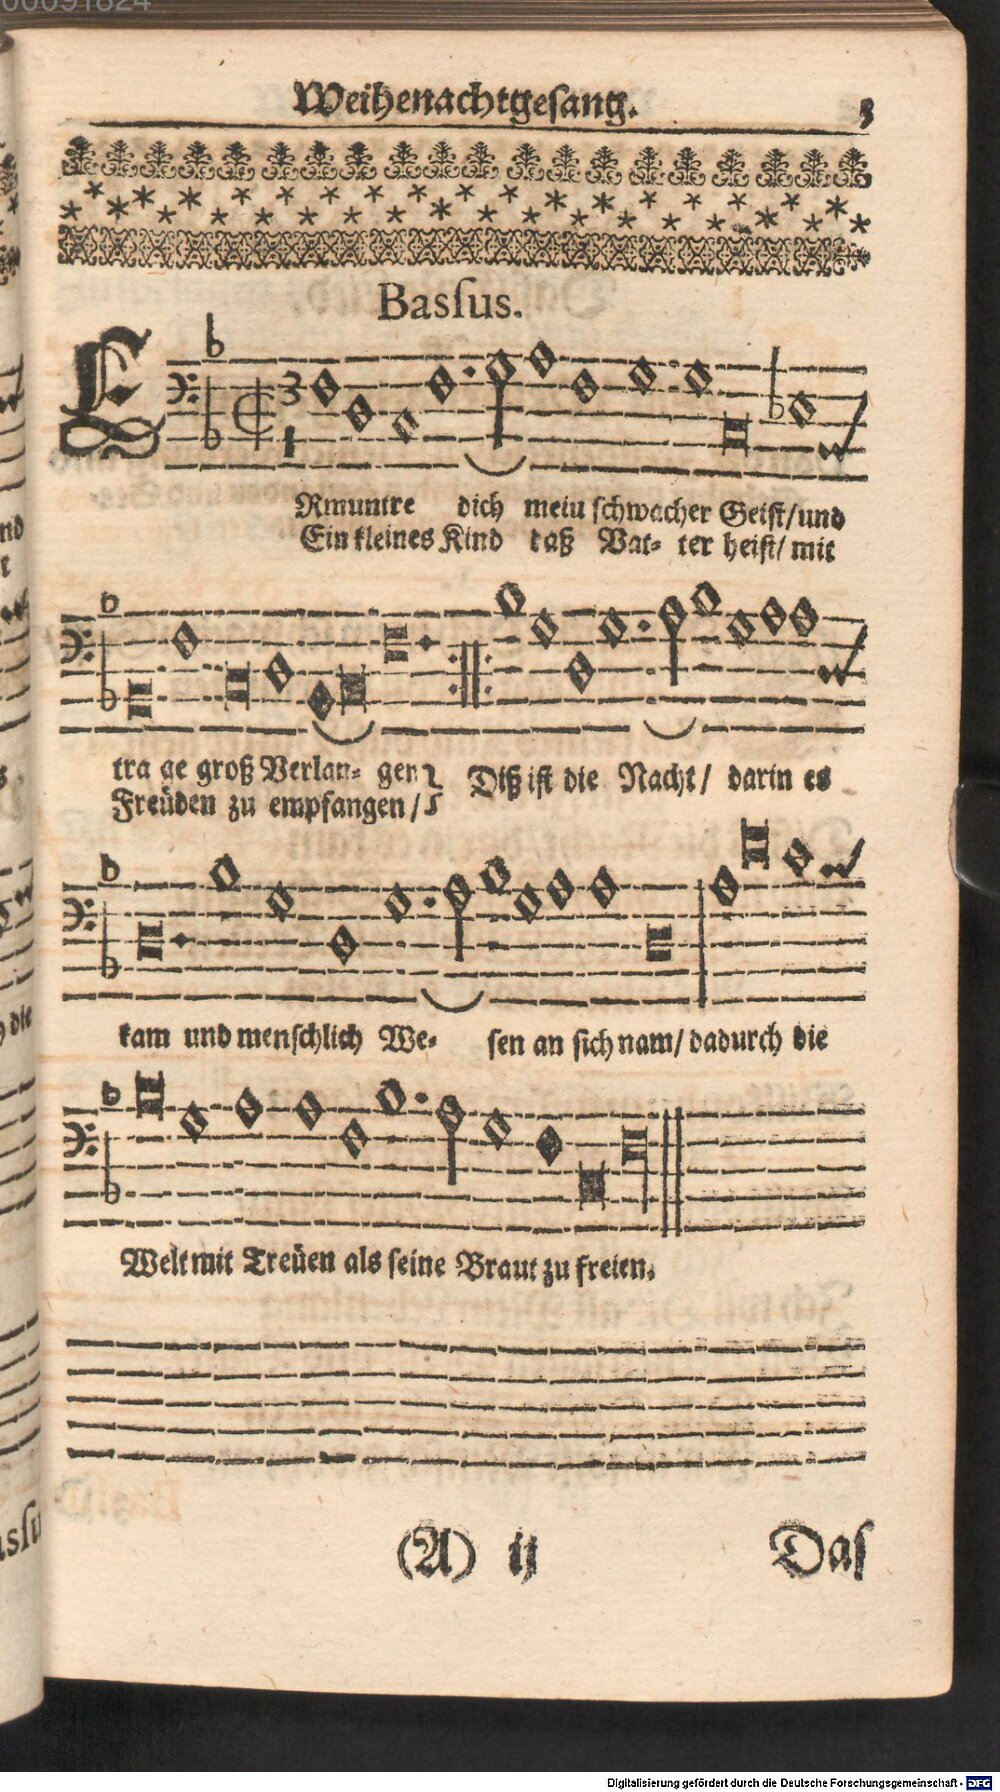 00091824
Weihenachtgesang. 3
Bassus.
ERmuntre dich mein schwacher Geist/und
Ein kleines Kind daß Vat- ter heist/ mit
tra ge groß Verlan- gen
Freüden zu empfangen/
Diß ist die Nacht/ darin es
kam und menschlich We- sen an sich nam/ dadurch die
Welt mit Treüen als seine Braut zu freien.
(A) ij Das
Digitalisierung gefördert durch die Deutsche Forschungsgemeinschaft - DFG